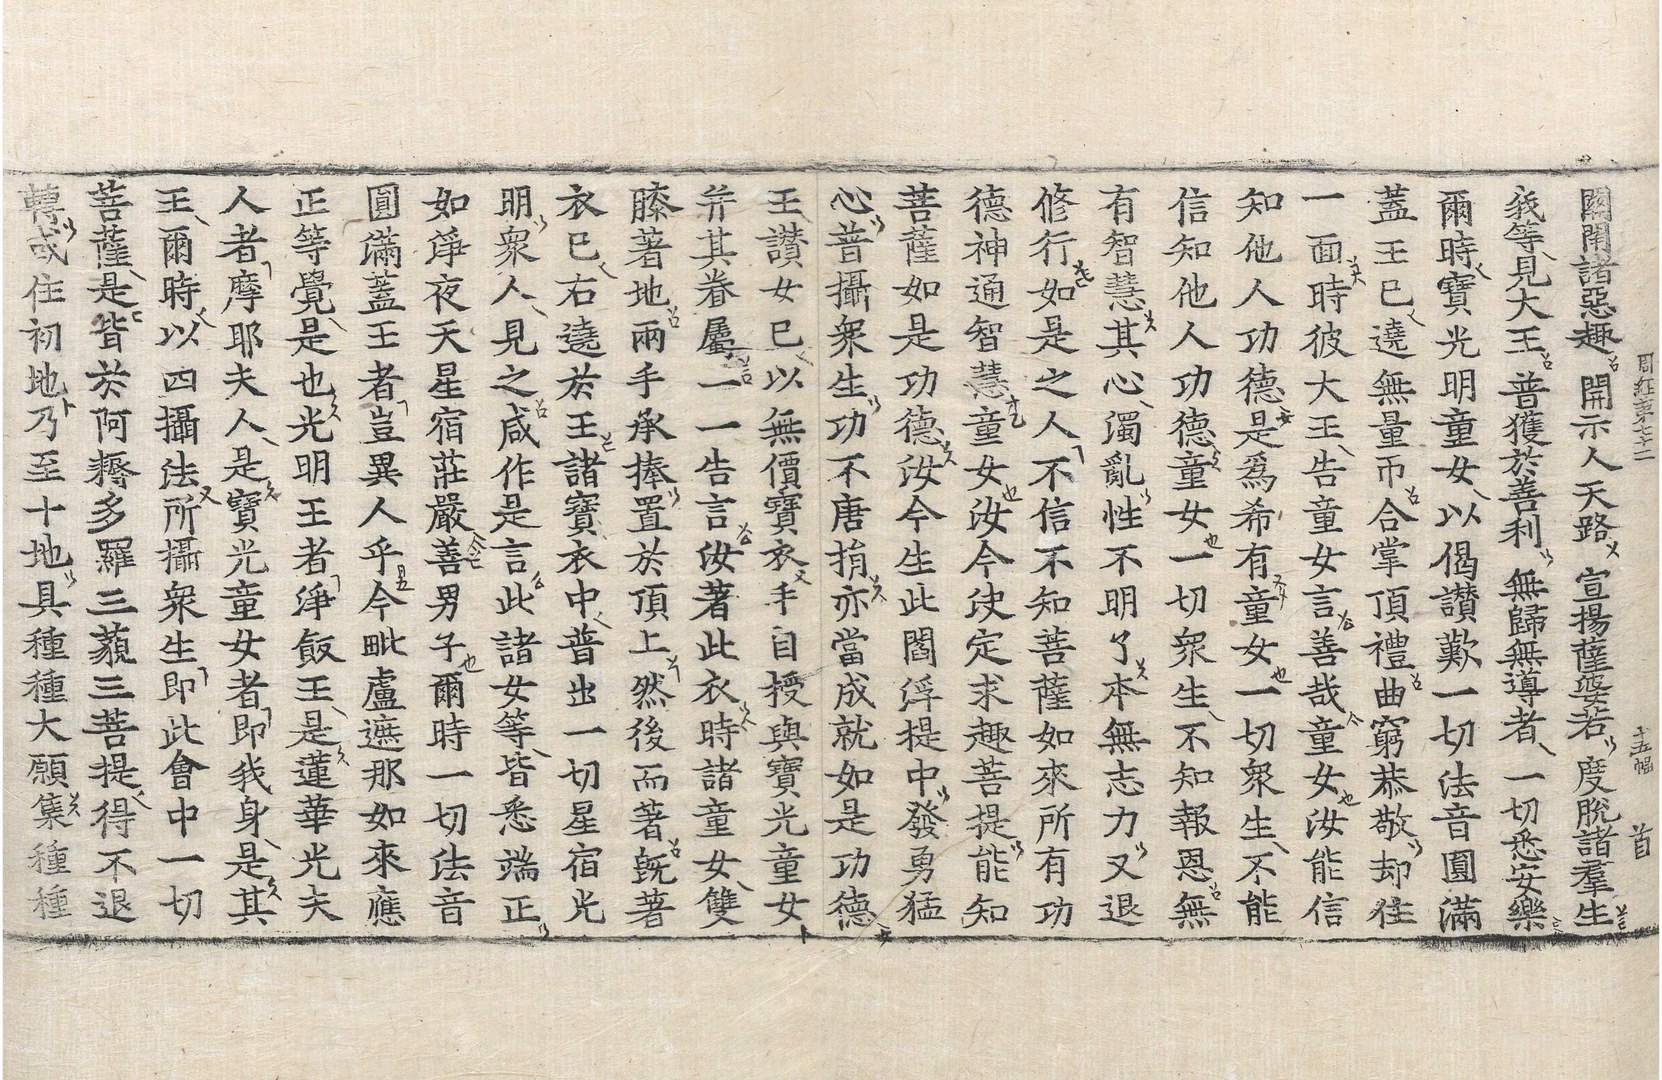 周經第七十二　十五幅　首
關閉諸惡趣開示人天路宣揚薩婆若度脫諸羣生
我等見大王普獲於善利無歸無導者一切悉安樂
爾時寶光明童女以偈讚歎一切法音圓滿
蓋王已遶無量帀合掌頂禮曲窮恭敬却住
一面時彼大王告童女言善哉童女汝能信
知他人功德是爲希有童女一切衆生不能
信知他人功德童女一切衆生不知報恩無
有智慧其心濁亂性不明了本無志力又退
修行如是之人不信不知菩薩如來所有功
德神通智慧童女汝今決定求趣菩提能知
菩薩如是功德汝今生此閻浮提中發勇猛
心普攝衆生功不唐捐亦當成就如是功德
王讚女已以無價寶衣手自授與寶光童女
幷其眷屬一一告言汝著此衣時諸童女雙
膝著地兩手承捧置於頂上然後而著旣著
衣已右遶於王諸寶衣中普出一切星宿光
明衆人見之咸作是言此諸女等皆悉端正
如淨夜天星宿莊嚴善男子爾時一切法音
圓滿蓋王者豈異人乎今毗盧遮那如來應
正等覺是也光明王者淨飯王是蓮華光夫
人者摩耶夫人是寶光童女者即我身是其
王爾時以四攝法所攝衆生即此會中一切
菩薩是皆於阿耨多羅三藐三菩提得不退
轉或住初地乃至十地具種種大願集種種